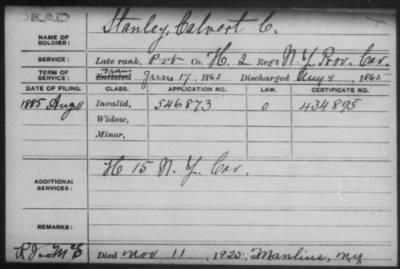 DEAD
NAME OF SOLDIER: Stanley, Calvert C.
SERVICE: Late rank, Pvt Co. H. 2 Reg't N.Y. Prov. Cav.
TERM OF SERVICE: Enlisted Tran June 17, 1865 Discharged Aug 9, 1865
DATE OF FILING. CLASS. APPLICATION NO. LAW. CERTIFICATE NO.
1885 Aug 11 Invalid, 546873 0 434895
Widow,
Minor,
ADDITIONAL SERVICES: H 15 N.Y. Cav.
REMARKS:
Died Nov 11, 1925, at Manlius, N.Y.